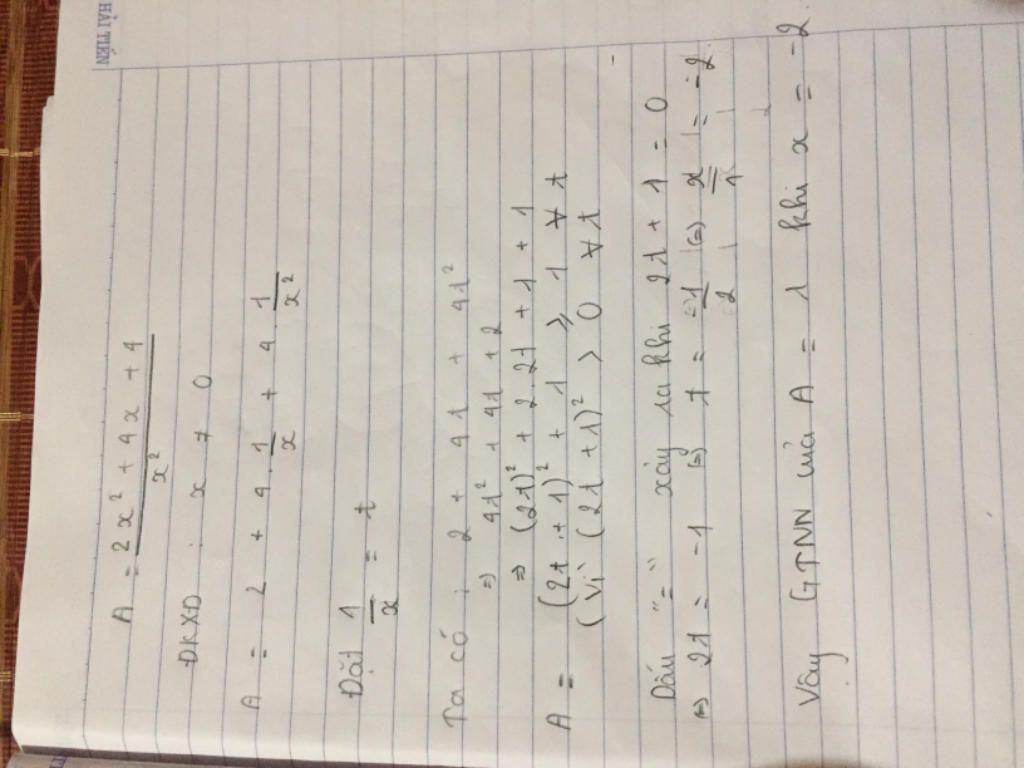 HẢI TIẾN
A = 2x² + 4x + 4 / x²
ĐKXĐ : x ≠ 0
A = 2 + 4 . 1/x + 4 . 1/x²
Đặt 1/x = t
Ta có : 2 + 4t + 4t²
=> 4t² + 4t + 2
=> (2t)² + 2.2t + 1 + 1
A = (2t + 1)² + 1 ≥ 1 ∀ t
(Vì (2t + 1)² > 0 ∀ t
Dấu "=" xảy ra khi 2t + 1 = 0
<=> 2t = -1 <=> t = -1/2 <=> x = -2
Vậy GTNN của A = 1 khi x = -2